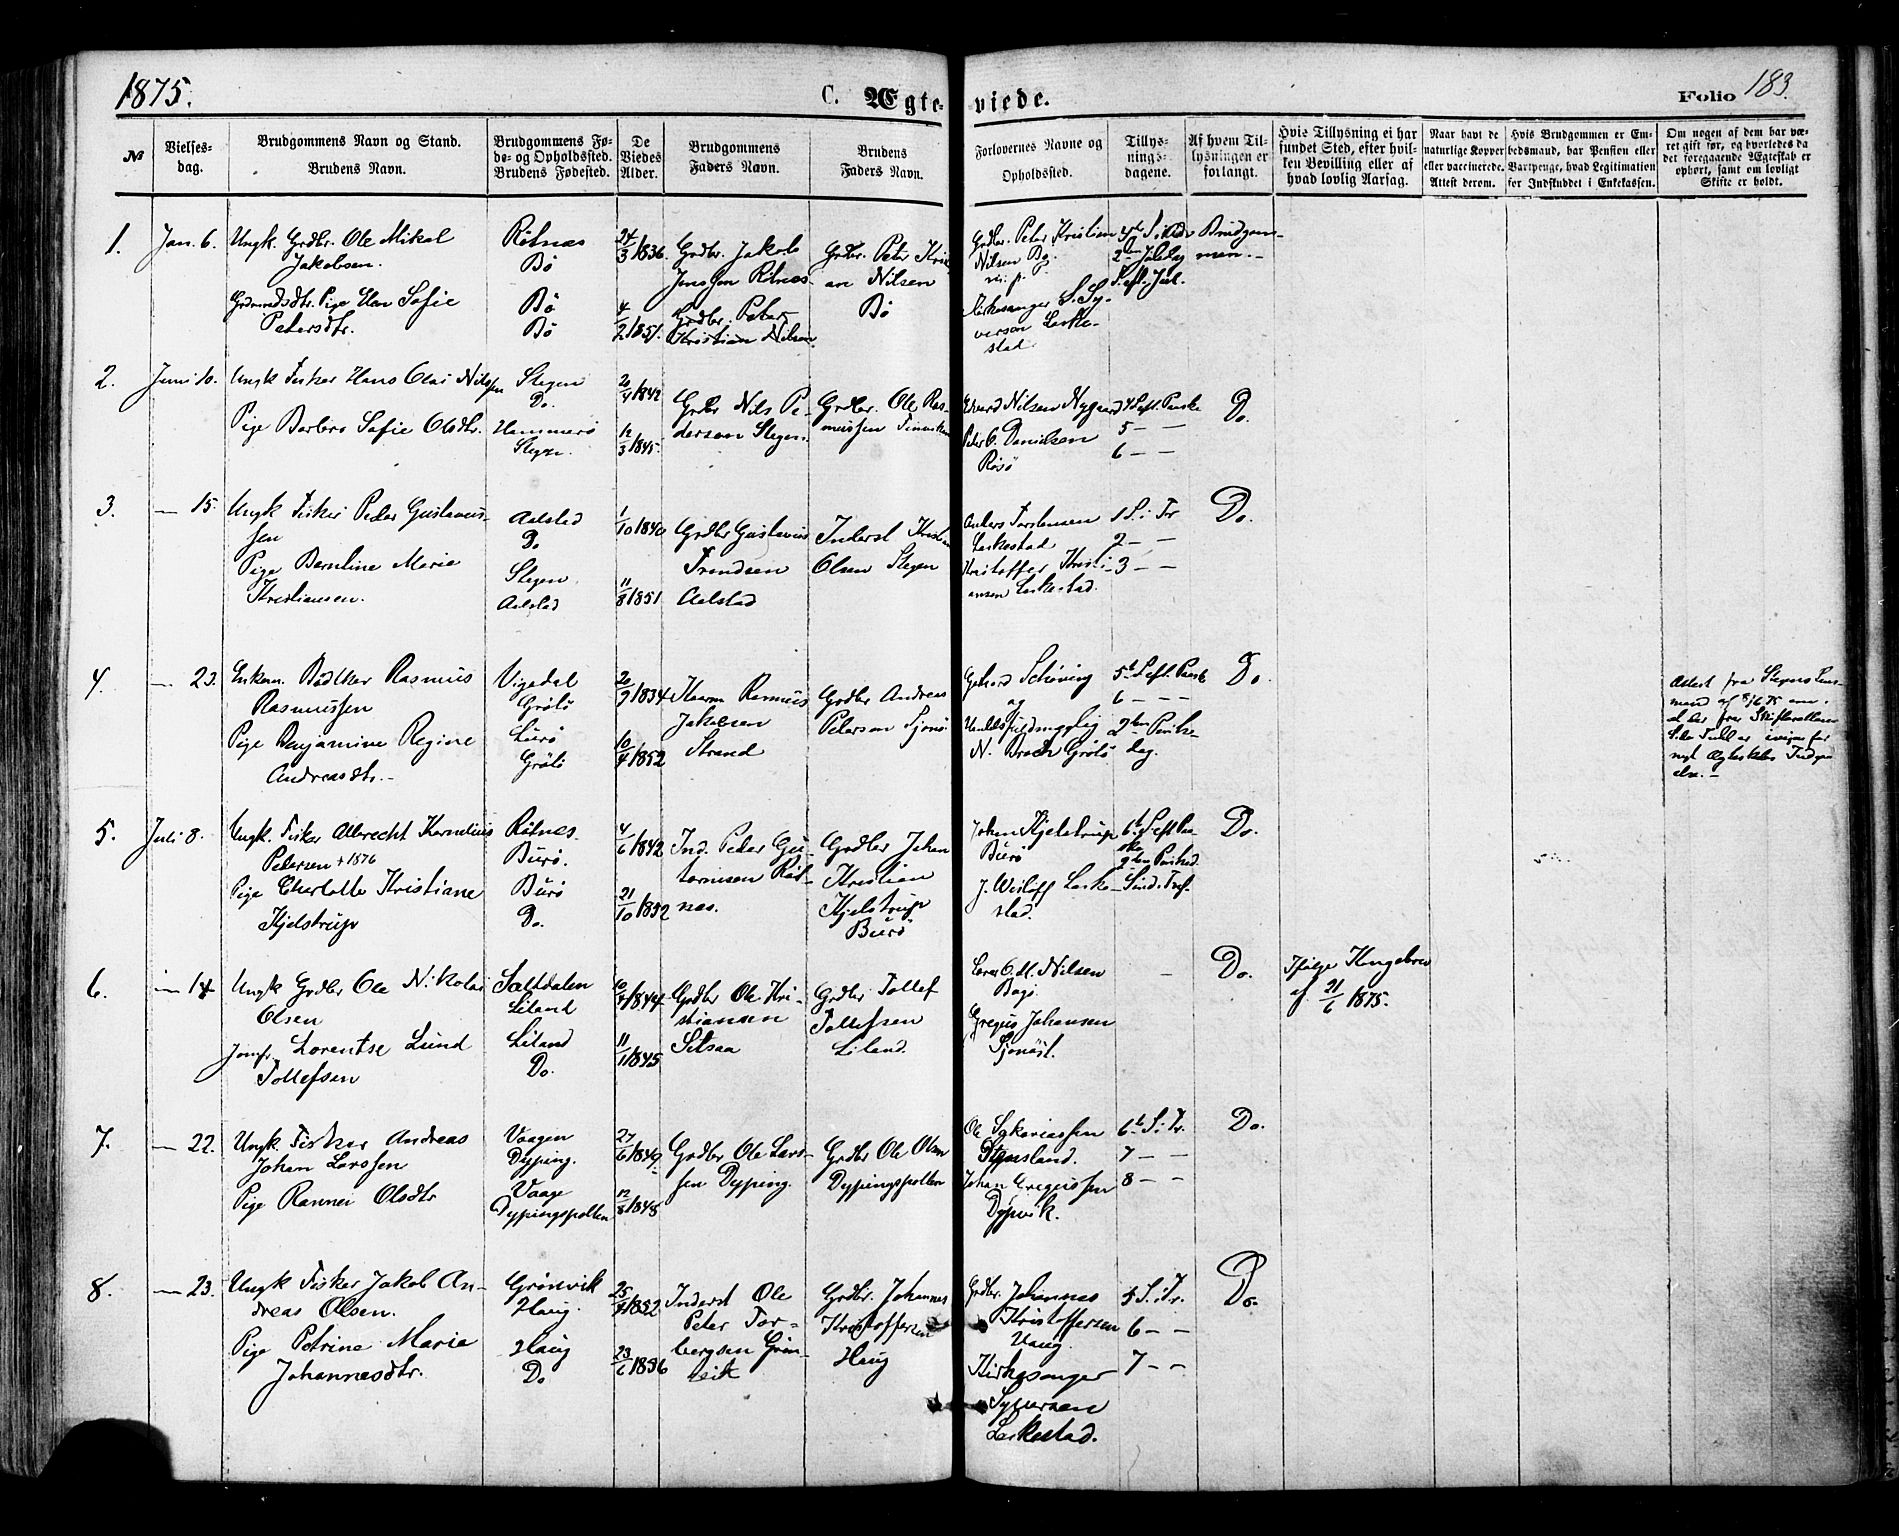 1875.
C. Ægte-viede.
Folio 183.
№
Vielses-
dag.
Brudgommens Navn og Stand.
Brudens Navn.
Brudgommens Fø-
de- og Opholdssted.
Brudens Fødested.
De
Viedes
Alder.
Brudgommens
Faders Navn.
Brudens
Faders Navn.
Forlovernes Navne og
Opholdssted.
Tillys-
nings-
dagene.
Af hvem Til-
lysningen er
forlangt.
Hvis Tillysning ei har
fundet Sted, efter hvil-
ken Bevilling eller af
hvad lovlig Aarsag.
Naar havt de
naturlige Kopper
eller vaccinerede.
Attest derom.
Hvis Brudgommen er Em-
bedsmand, har Pension eller
Vartpenge, hvad Legitimation
for Indskuddet i Enkekassen.
Om nogen af dem har væ-
ret gift før, og hvorledes da
det foregaaende Ægteskab er
ophørt, samt om lovligt
Skifte er holdt.
1.
Jan. 6.
Ungk. Grdbr. Ole Mikal
Jakobsen.
Pige Elen Sofie
Petersdtr.
Rötnæs
Bö
Bö
Bö
24/3 1836.
4/2 1851.
Grdbr. Jakob
Jensen Rötnæs
Grdbr. Peter
Kristian Nilsen
Grdbr. Peter Kristi-
an Nilsen
Bö
Grdbr. Peter Kristian
Nilsen Bö
Kirkesanger S. Sy-
versen Leske-
stad
2den Juledag
S. eft. Jul.
Brudgom-
men.-
2.
Juni 10.
Ungk Fisker Hans Olai Nilssen
Pige Barbro Sofie Olsdtr.
Stegen
Do.
Hammerö
Stegen.
20/4 1842
12/3 1845.
Grdbr Nils Pe-
dersen Stegen.
Grdbr. Ole Ras-
mussen
Edvard Nilsen Nygaard
Peder O. Danielsen
Rösö
4 S. eft. Paaske
5 - -
6 - -
Do.
3.
- 15.
Ungk Fisker Peder Gustavus-
sen
Pige Berntine Marie
Kristiansen.
Aalstad
Do
Stegen
Aalstad
1/10 1840
11/8 1851
Grdbr Gustavus
Trondsen
Aalstad
Inderst Kristian
Olsen Stegen
Anders Torstensen
Leskestad
Kristoffer Kristi-
ansen Leskestad.
1 S. i Tr
2 - -
3 - -
Do.
4.
- 23.
Enkem. Bödtker Rasmus
Rasmussen
Pige Benjamine Regine
Andreasdtr.-
Vigedal
Grötö
Lurö
Grötö
20/9 1834
10/4 1852
Rasmus
Jakobsen
Strand
Grdbr Andreas
Petersen Sjonö
Gerhard Schöning
og
Handelsfuldmægtig
N. Broch Grötö
5te S. eft. Paaske
6 - -
2den Pintse-
dag.
Do.
Attest fra Stegens Lens-
mand af 8/6 75
5.
Juli 8.
Ungk. Fisker Albrecht Kornelius
Petersen +1876
Pige Charlotte Kristiane
Kjelstrup
Rötnæs
Burö.
Burö
Do.
4/6 1842
21/10 1852
Ind. Peder Gu-
Röt-
nes.
Grdbr Johan
Kristian
Kjelstrup
Burö
Johan Kjelstrup
Burö
J. Wisloff Leske-
stad.
6te S. eft. Paa-
ske
Do.
6.
- 14
Ungk Grdbr Ole Nikolai
Olsen
Jomfr. Lorentse Lund
Tollefsen
Saltdalen
Liland
Liland
Do.
1844
11/11 1845
Grdbr Ole Kri-
stiansen
Setsaa
Grdbr Tollef
Tollefsen
Liland.
Nilsen
Bogö.
Gregus Johansen
-
Do.
Ifölge Kongebrev
af 21/6 1875.
7.
- 22.
Ungk. Fisker Andreas
Johan Larssen
Pige Rannei Olsdtr
Vaagen
Dyping.
Vaage
Dypingspollen
27/6 1849
12/8 1848
Grdbr Ole Lars-
sen Dyping.
Grdbr Ole Olsen
Dypingspollen
Ole Sakariassen
Johan Gregussen
Dypvik.
6te S. i Tr.
7 - -
8 - -
Do.
8.
- 23.
Ungk Fisker Jakob An-
dreas Olsen.
Pige Petrine Maria
Johannesdtr.
Grönvik
Haug.
Haug
Do
1852
23/6 1856
Inderst Ole
Peter Tor-
bergsen Grön-
vik
Grdbr. Johannes
Kristoffersen
Haug
Grdbr. Johannes
Kristoffersen
Haug.
Kirkesanger
Syversen
Leskestad.
5 S. i Tr.
6 - -
7 - -
Do.